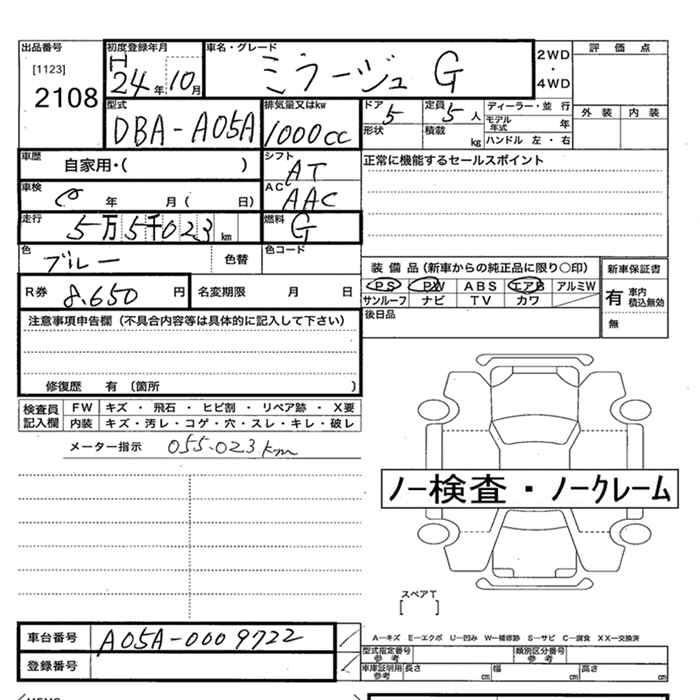 出品番号 初度登録年月 車名・グレード 2WD ・ 4WD 評価点
[1123] H 24年 10月 ミラージュ G
2108
型式 排気量又はkw ドア 定員 ディーラー・並行 外装 内装
DBA-A05A 1000cc 5 5人 モデル年式 年
形状 積載 kg ハンドル 左・右
車歴 自家用・( ) シフト AT 正常に機能するセールスポイント
車検 年 月( 日) AC AAC
走行 5万5千023km 燃料 G
色 ブルー 色替 色コード
装備品(新車からの純正品に限り○印) 新車保証書
R券 8.650円 名変期限 月 日 PS PW ABS エアB アルミW 有 車内 積込無効
サンルーフ ナビ TV カワ
注意事項申告欄(不具合内容等は具体的に記入して下さい) 後日品 無
修復歴 有 (箇所 )
検査員記入欄 FW キズ・飛石・ヒビ割・リペア跡・X要
内装 キズ・汚レ・コゲ・穴・スレ・キレ・破レ
メーター指示 055.023km
ノー検査・ノークレーム
スペアT
[ ]
車台番号 A05A-0009722
登録番号
A―キズ E―エクボ U―凹み W―補修跡 S―サビ C―腐食 XX―交換済
型式指定番号 参考 類別区分番号 参考
車庫証明用 参考 長さ cm 幅 cm 高さ cm
MEMO